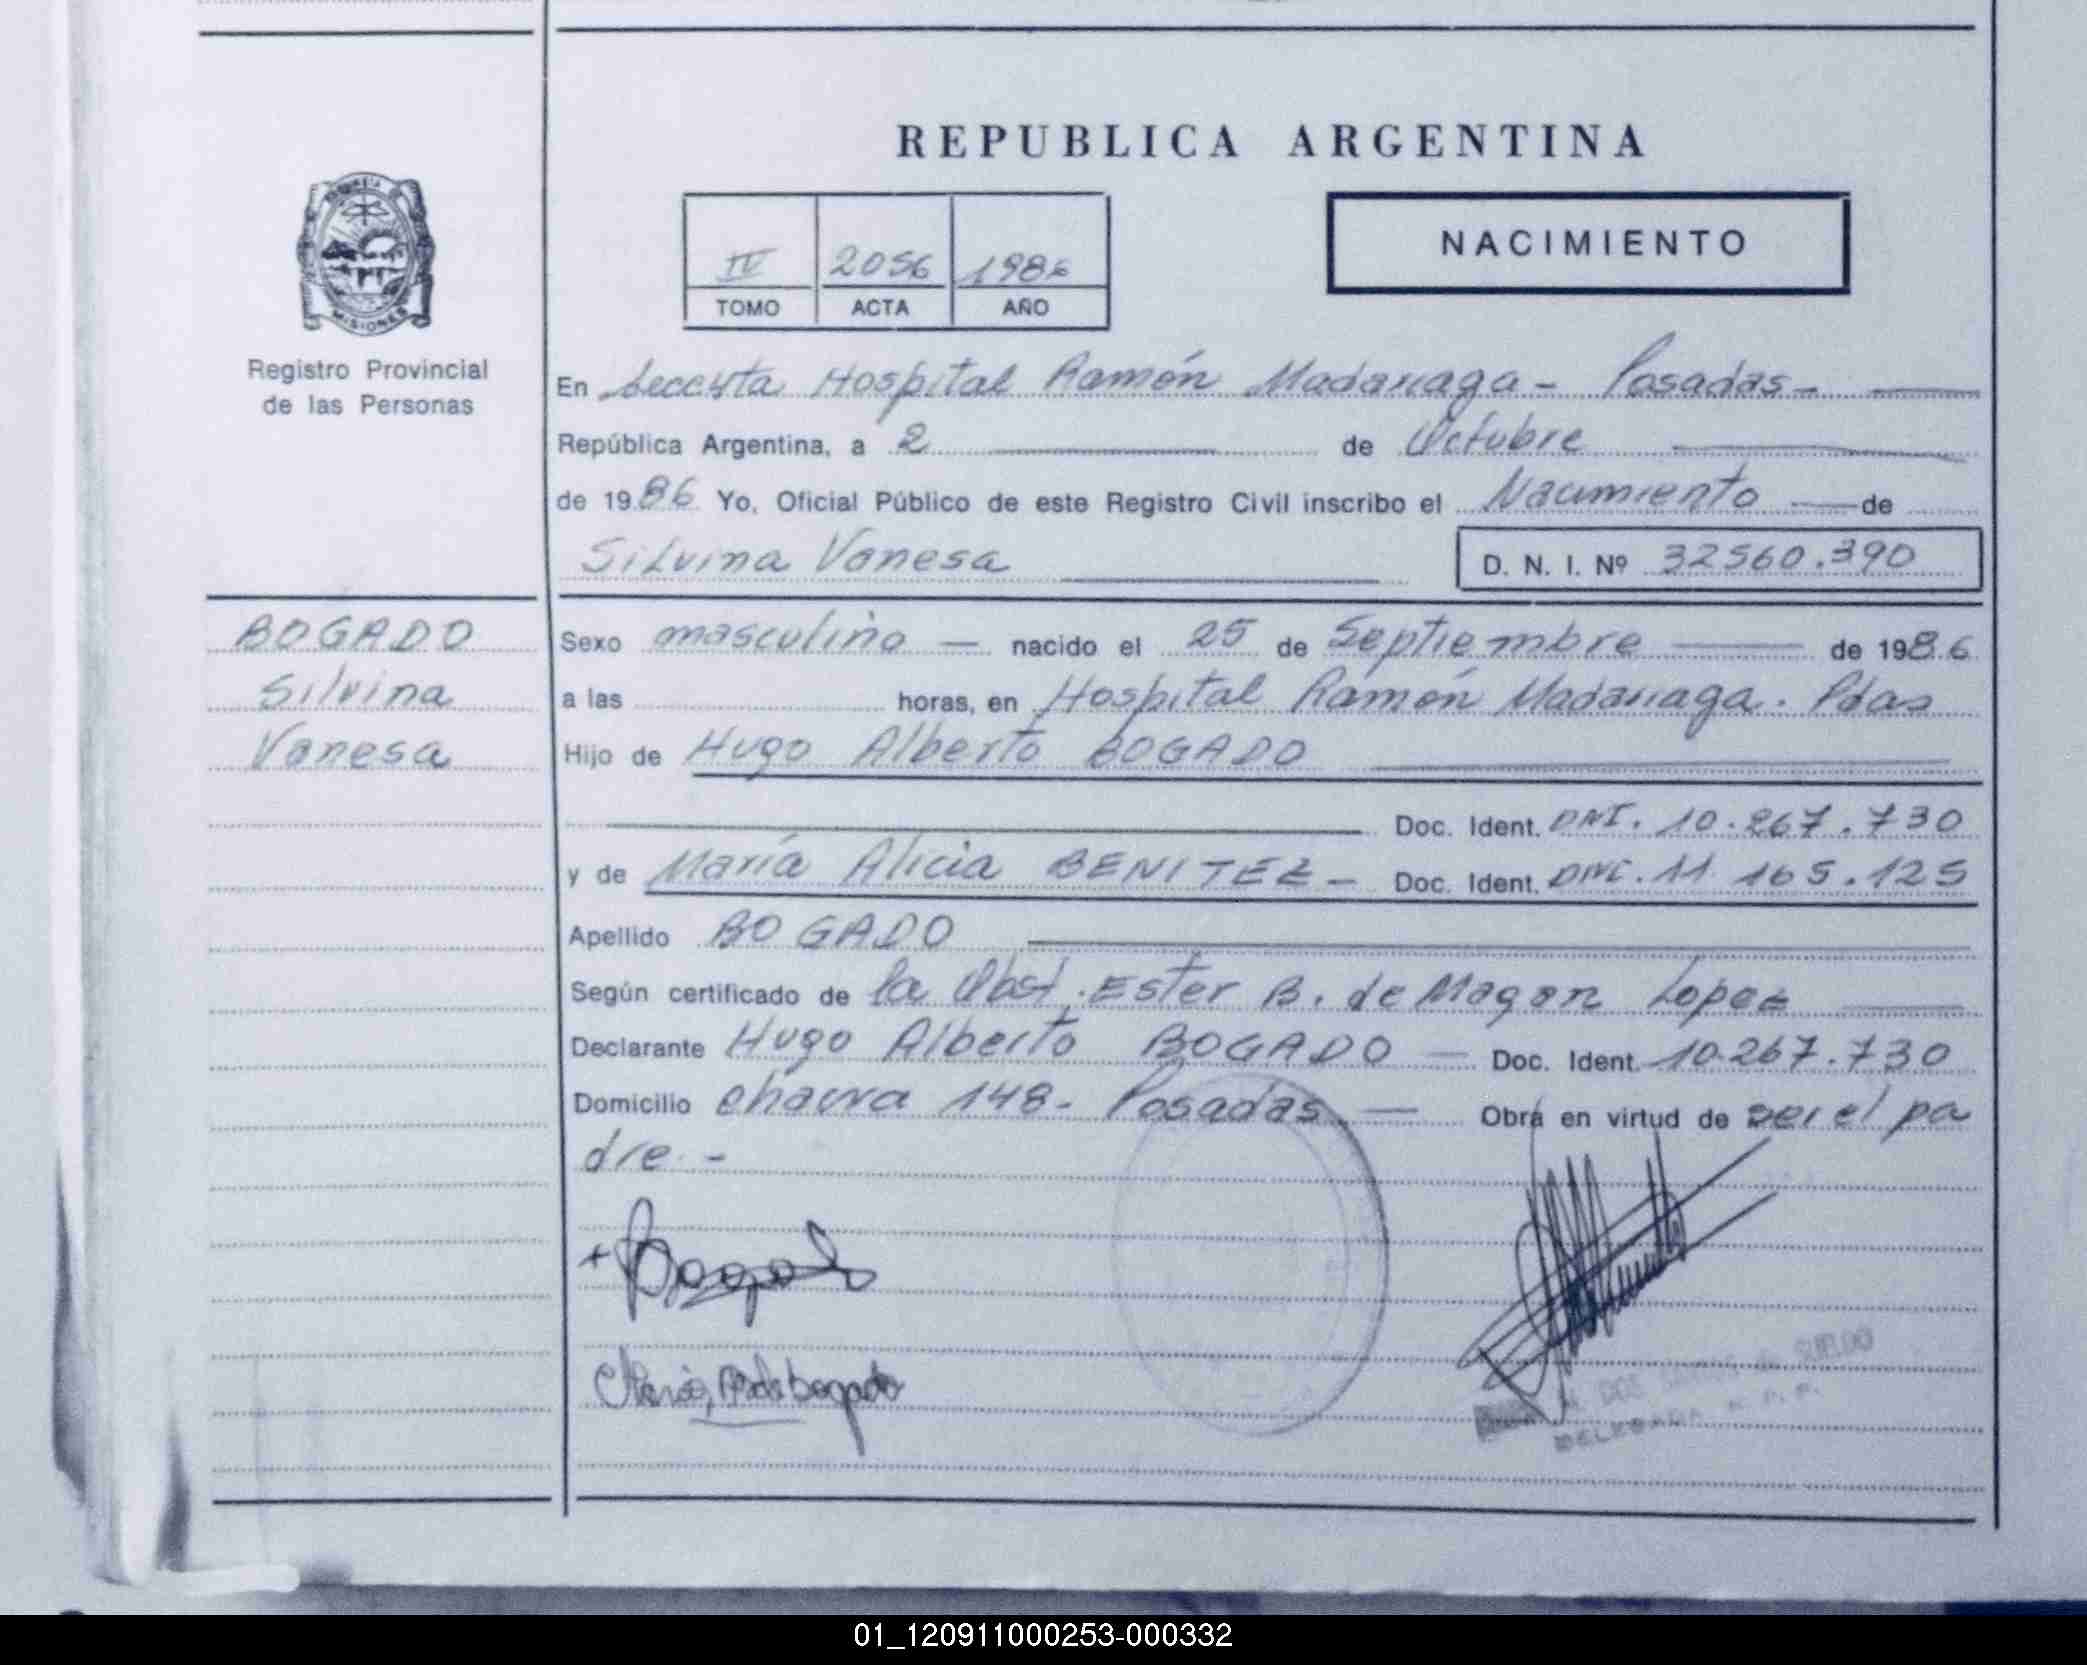 REPUBLICA ARGENTINA
NACIMIENTO
IV 2056 1986
TOMO ACTA AÑO
MISIONES
Registro Provincial
de las Personas
En Hospital Ramón Madariaga - Posadas -
República Argentina, a 2 de Octubre
de 1986 Yo, Oficial Público de este Registro Civil inscribo el Nacimiento de
Silvina Vanesa D. N. I. Nº 32560.390
BOGADO
Silvina
Vanesa
Sexo masculino - nacido el 25 de Septiembre de 1986
a las horas, en Hospital Ramón Madariaga. Pdas
Hijo de Hugo Alberto BOGADO
Doc. Ident. DNI. 10.267.730
y de María Alicia BENITEZ - Doc. Ident. 11 165.125
Apellido BOGADO
Según certificado de la Obst. Ester B. de Magan Lopez
Declarante Hugo Alberto BOGADO - Doc. Ident. 10.267.730
Domicilio chacra 148 - Posadas - Obra en virtud de ser el pa
dre. -
DOS
DELEGADA
01_120911000253-000332